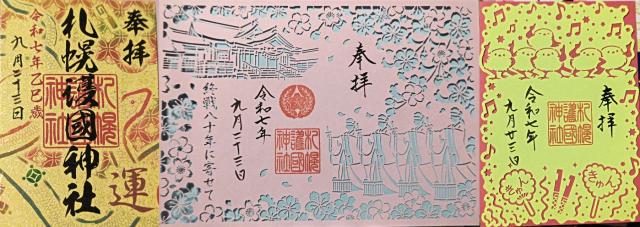 奉拝
札幌護國神社
令和七年乙巳歳
九月二十三日
札幌
護國
神社
運
奉拝
令和七年
九月二十三日
終戦八十年に寄せて
札幌
護國
神社
奉拝
令和七年
九月廿三日
札幌
護國
神社
きゅん